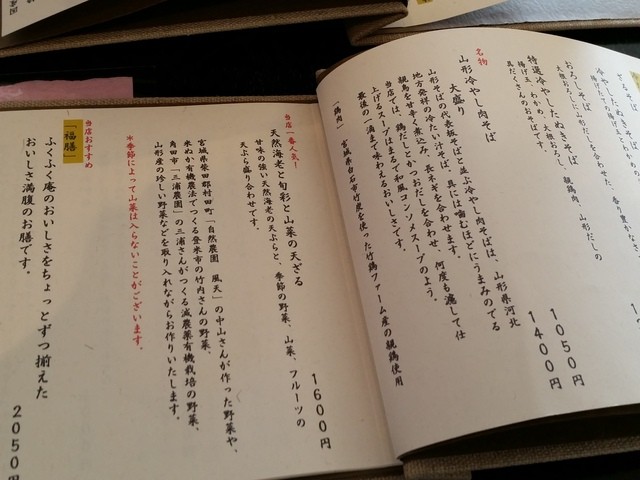 おろしそば
冷やしたぬきそば
特選冷やしたぬきそば
揚げ玉、わかめ、大根おろし、親鶏肉、山形だしの
具だくさんのおそばです。
1050円
名物
山形冷やし肉そば
1400円
大盛り
山形そばの代表板そばと並ぶ冷やし肉そばは、山形県河北
地方発祥の冷たい汁そば。具には噛むほどにうまみのでる
親鳥を甘辛く煮込み、長ネギを合わせます。
当店では、鶏だしとかつおだしを合わせ、何度も漉して仕
上げるスープはまるで和風コンソメスープのよう。
最後の一滴まで味わえるおいしさです。
(鶏肉) 宮城県白石市竹炭を使った竹鶏ファーム産の親鶏使用
当店一番人気!
天然海老と旬彩と山菜の天ざる
1600円
甘味の強い天然海老の天ぷらと、季節の野菜、山菜、フルーツの
天ぷら盛り合わせです。
宮城県柴田郡村田町「自然農園 風天」の中山さんが作った野菜や、
米ぬか有機農法でつくる登米市の竹内さんの野菜、
角田市「三浦農園」の三浦さんがつくる減農薬有機栽培の野菜、
山形産の珍しい野菜などを取り入れながらお作りいたします。
※季節によって山菜は入らないことがございます。
当店おすすめ
「福膳」
ふくふく庵のおいしさをちょっとずつ揃えた
おいしさ満腹のお膳です。
2050円